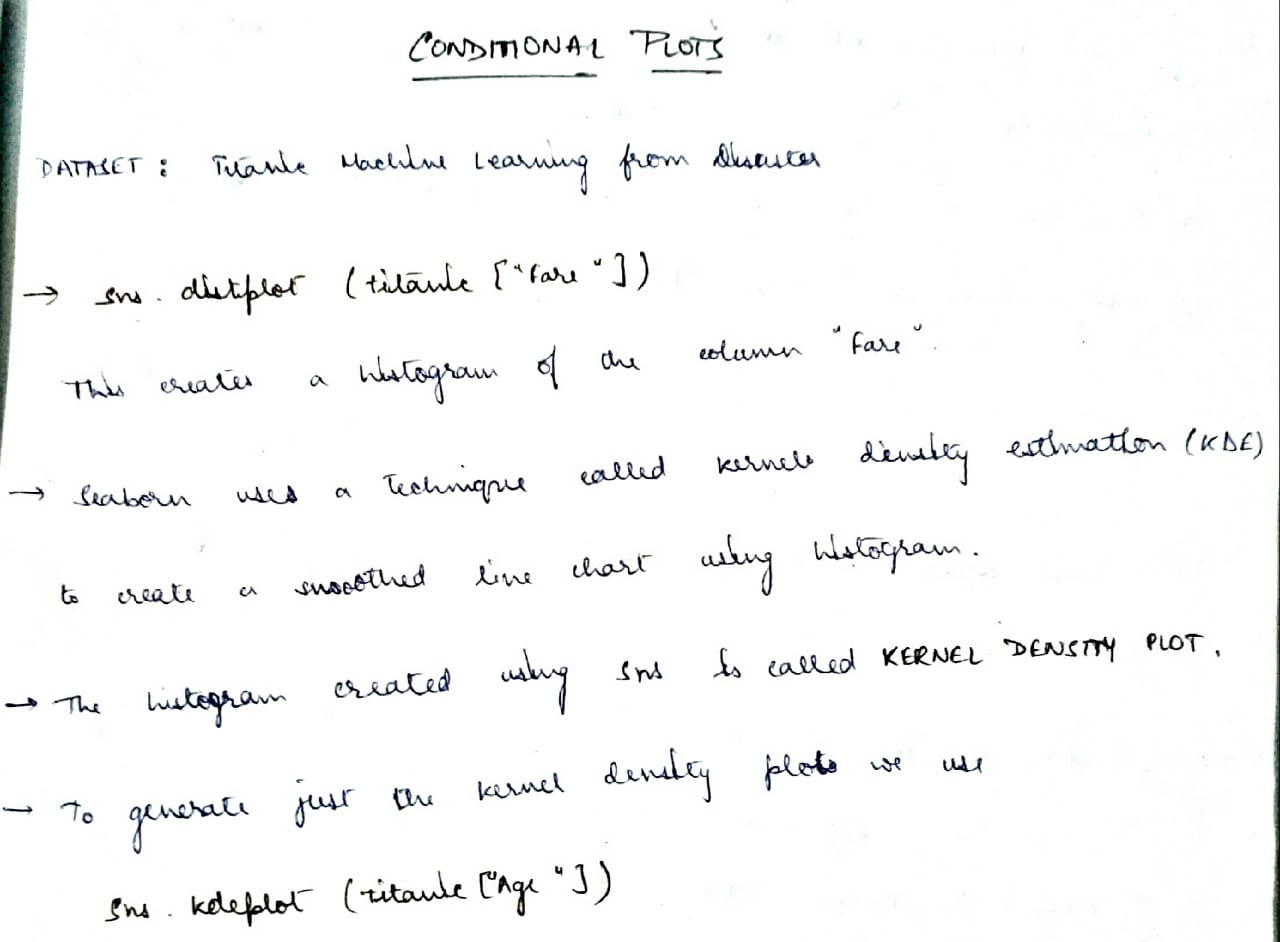 CONDITIONAL PLOTS
DATASET : Titanic Machine Learning from Disaster
→ sns. distplot (titanic ["Fare"])
This creates a histogram of the column "Fare".
→ Seaborn uses a Technique called kernels density estimation (KDE)
to create a smooothed line chart using histogram.
→ The histogram created using sns is called KERNEL DENSITY PLOT.
→ To generate just the kernel density plots we use
sns. kdeplot (titanic ["Age"])